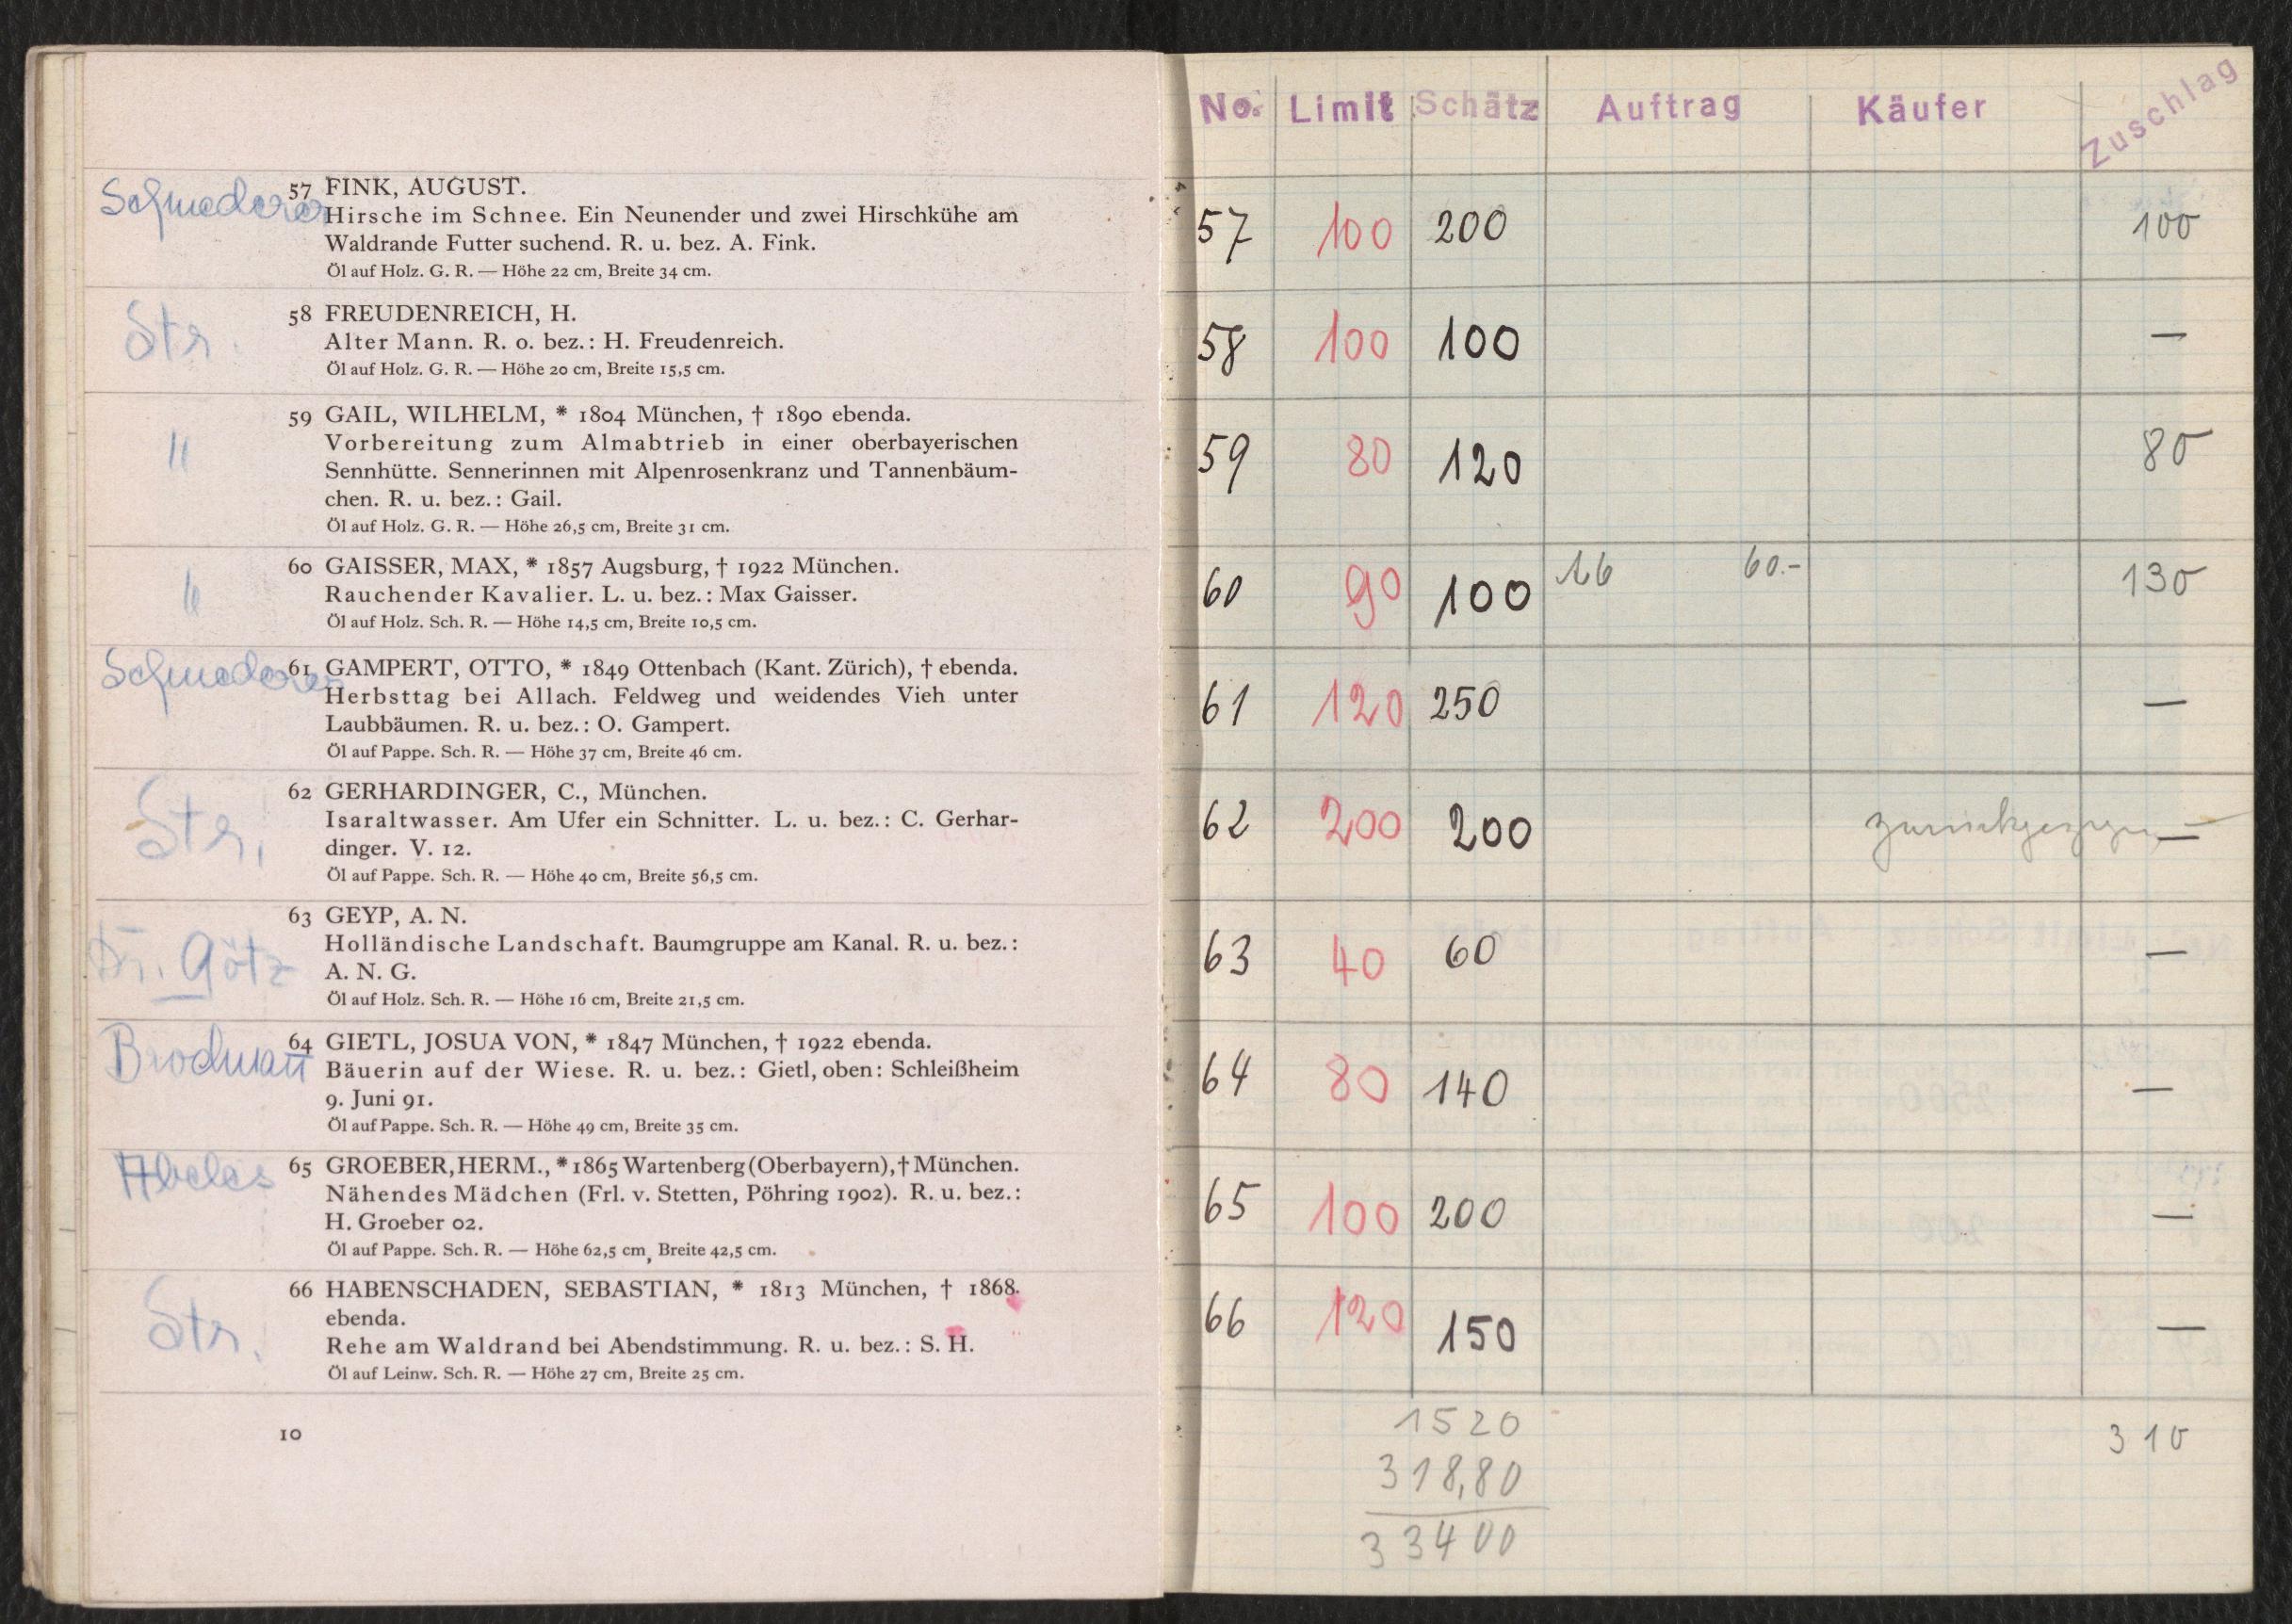 Schmederer
57 FINK, AUGUST.
Hirsche im Schnee. Ein Neunender und zwei Hirschkühe am
Waldrande Futter suchend. R. u. bez. A. Fink.
Öl auf Holz. G. R. — Höhe 22 cm, Breite 34 cm.
Str.
58 FREUDENREICH, H.
Alter Mann. R. o. bez.: H. Freudenreich.
Öl auf Holz. G. R. — Höhe 20 cm, Breite 15,5 cm.
"
59 GAIL, WILHELM, * 1804 München, † 1890 ebenda.
Vorbereitung zum Almabtrieb in einer oberbayerischen
Sennhütte. Sennerinnen mit Alpenrosenkranz und Tannenbäum-
chen. R. u. bez.: Gail.
Öl auf Holz. G. R. — Höhe 26,5 cm, Breite 31 cm.
"
60 GAISSER, MAX, * 1857 Augsburg, † 1922 München.
Rauchender Kavalier. L. u. bez.: Max Gaisser.
Öl auf Holz. Sch. R. — Höhe 14,5 cm, Breite 10,5 cm.
Schmederer
61 GAMPERT, OTTO, * 1849 Ottenbach (Kant. Zürich), † ebenda.
Herbsttag bei Allach. Feldweg und weidendes Vieh unter
Laubbäumen. R. u. bez.: O. Gampert.
Öl auf Pappe. Sch. R. — Höhe 37 cm, Breite 46 cm.
Str.
62 GERHARDINGER, C., München.
Isaraltwasser. Am Ufer ein Schnitter. L. u. bez.: C. Gerhar-
dinger. V. 12.
Öl auf Pappe. Sch. R. — Höhe 40 cm, Breite 56,5 cm.
Dr. Götz
63 GEYP, A. N.
Holländische Landschaft. Baumgruppe am Kanal. R. u. bez.:
A. N. G.
Öl auf Holz. Sch. R. — Höhe 16 cm, Breite 21,5 cm.
64 GIETL, JOSUA VON, * 1847 München, † 1922 ebenda.
Bäuerin auf der Wiese. R. u. bez.: Gietl, oben: Schleißheim
9. Juni 91.
Öl auf Pappe. Sch. R. — Höhe 49 cm, Breite 35 cm.
Abeles
65 GROEBER, HERM., * 1865 Wartenberg (Oberbayern), † München.
Nähendes Mädchen (Frl. v. Stetten, Pöhring 1902). R. u. bez.:
H. Groeber 02.
Öl auf Pappe. Sch. R. — Höhe 62,5 cm, Breite 42,5 cm.
Str.
66 HABENSCHADEN, SEBASTIAN, * 1813 München, † 1868.
ebenda.
Rehe am Waldrand bei Abendstimmung. R. u. bez.: S. H.
Öl auf Leinw. Sch. R. — Höhe 27 cm, Breite 25 cm.
10
No. Limit Schätz Auftrag Käufer Zuschlag
57 100 200 100
58 100 100 —
59 80 120 80
60 90 100 16 60.- 130
61 120 250 —
62 200 200 zurückgezogen —
63 40 60 —
64 80 140 —
65 100 200 —
66 120 150 —
1520 310
318,80
33400